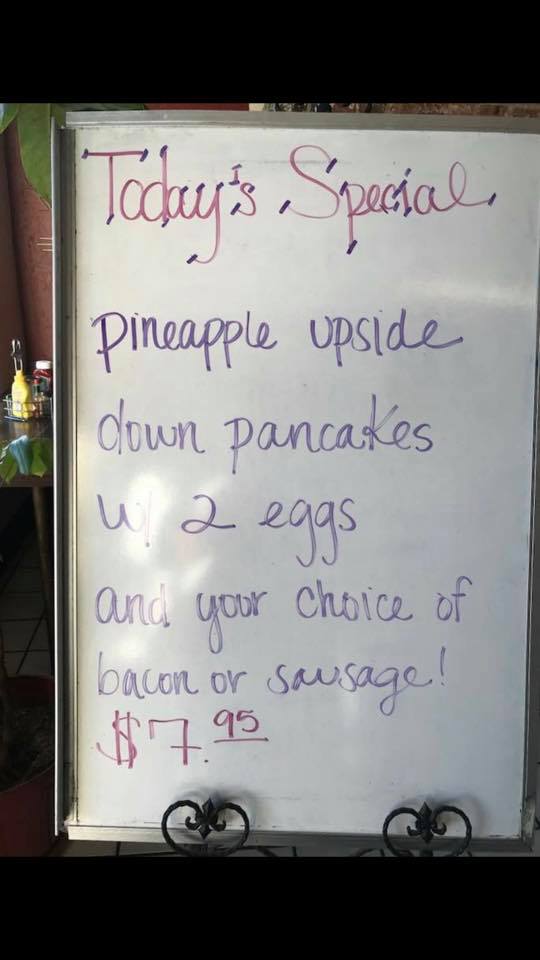 Today's Special
pineapple upside
down pancakes
w/ 2 eggs
and your choice of
bacon or sausage!
$7.95